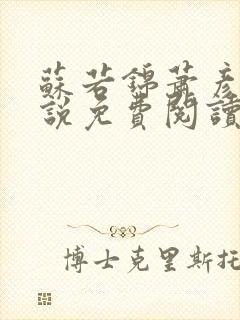 蘇若錦蕭彥
說免費閱讀
博士克里斯托